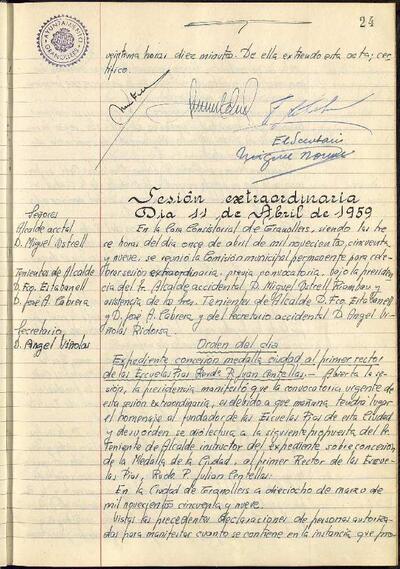 24
AYUNTAMIENTO
GRANOLLERS
veintena horas diez minutos. De ella extiendo esta acta; cer-
tifico.
El Secretario
Sesión extraordinaria
Dia 11 de Abril de 1959
Señores
Alcalde acctal
D. Miguel Ostrell
Tenientes de Alcalde
D. Fco. Estabanell
D. José A. Cabrera
Secretario
D. Angel Viñolas
En la Casa Consistorial de Granollers, siendo las tre
ce horas del dia once de abril de mil novecientos cincuenta
y nueve, se reunió la Comisión municipal permanente para cele-
brar sesión extraordinaria, previa convocatoria, bajo la presidencia
del Sr. Alcalde accidental D. Miguel Ostrell Riambau y
asistencia de los Sres. Tenientes de Alcalde D. Fco. Estabanell
y D. José A. Cabrera y del Secretario accidental D. Angel Vi-
ñolas Ridorsa.
Orden del dia
Expediente concesión medalla ciudad al primer rector
de las Escuelas Pias Rvdo. P. Julian Centellas.- Abierta la se-
sión, la presidencia manifestó que la convocatoria urgente de
esta sesión extraordinaria, es debido a que mañana tendrá lugar
el homenaje al fundador de las Escuelas Pias de esta Ciudad
y de su orden se dio lectura a la siguiente propuesta del Sr.
Teniente de Alcalde instructor del expediente sobre concesión
de la Medalla de la Ciudad, al primer Rector de las Escue-
las Pias, Rvdo. P. Julian Centellas:
En la Ciudad de Granollers a dieciocho de marzo de
mil novecientos cincuenta y nueve.
Vistas las precedentes declaraciones de personas autoriza-
das para manifestar cuanto se contiene en la instancia que pro-